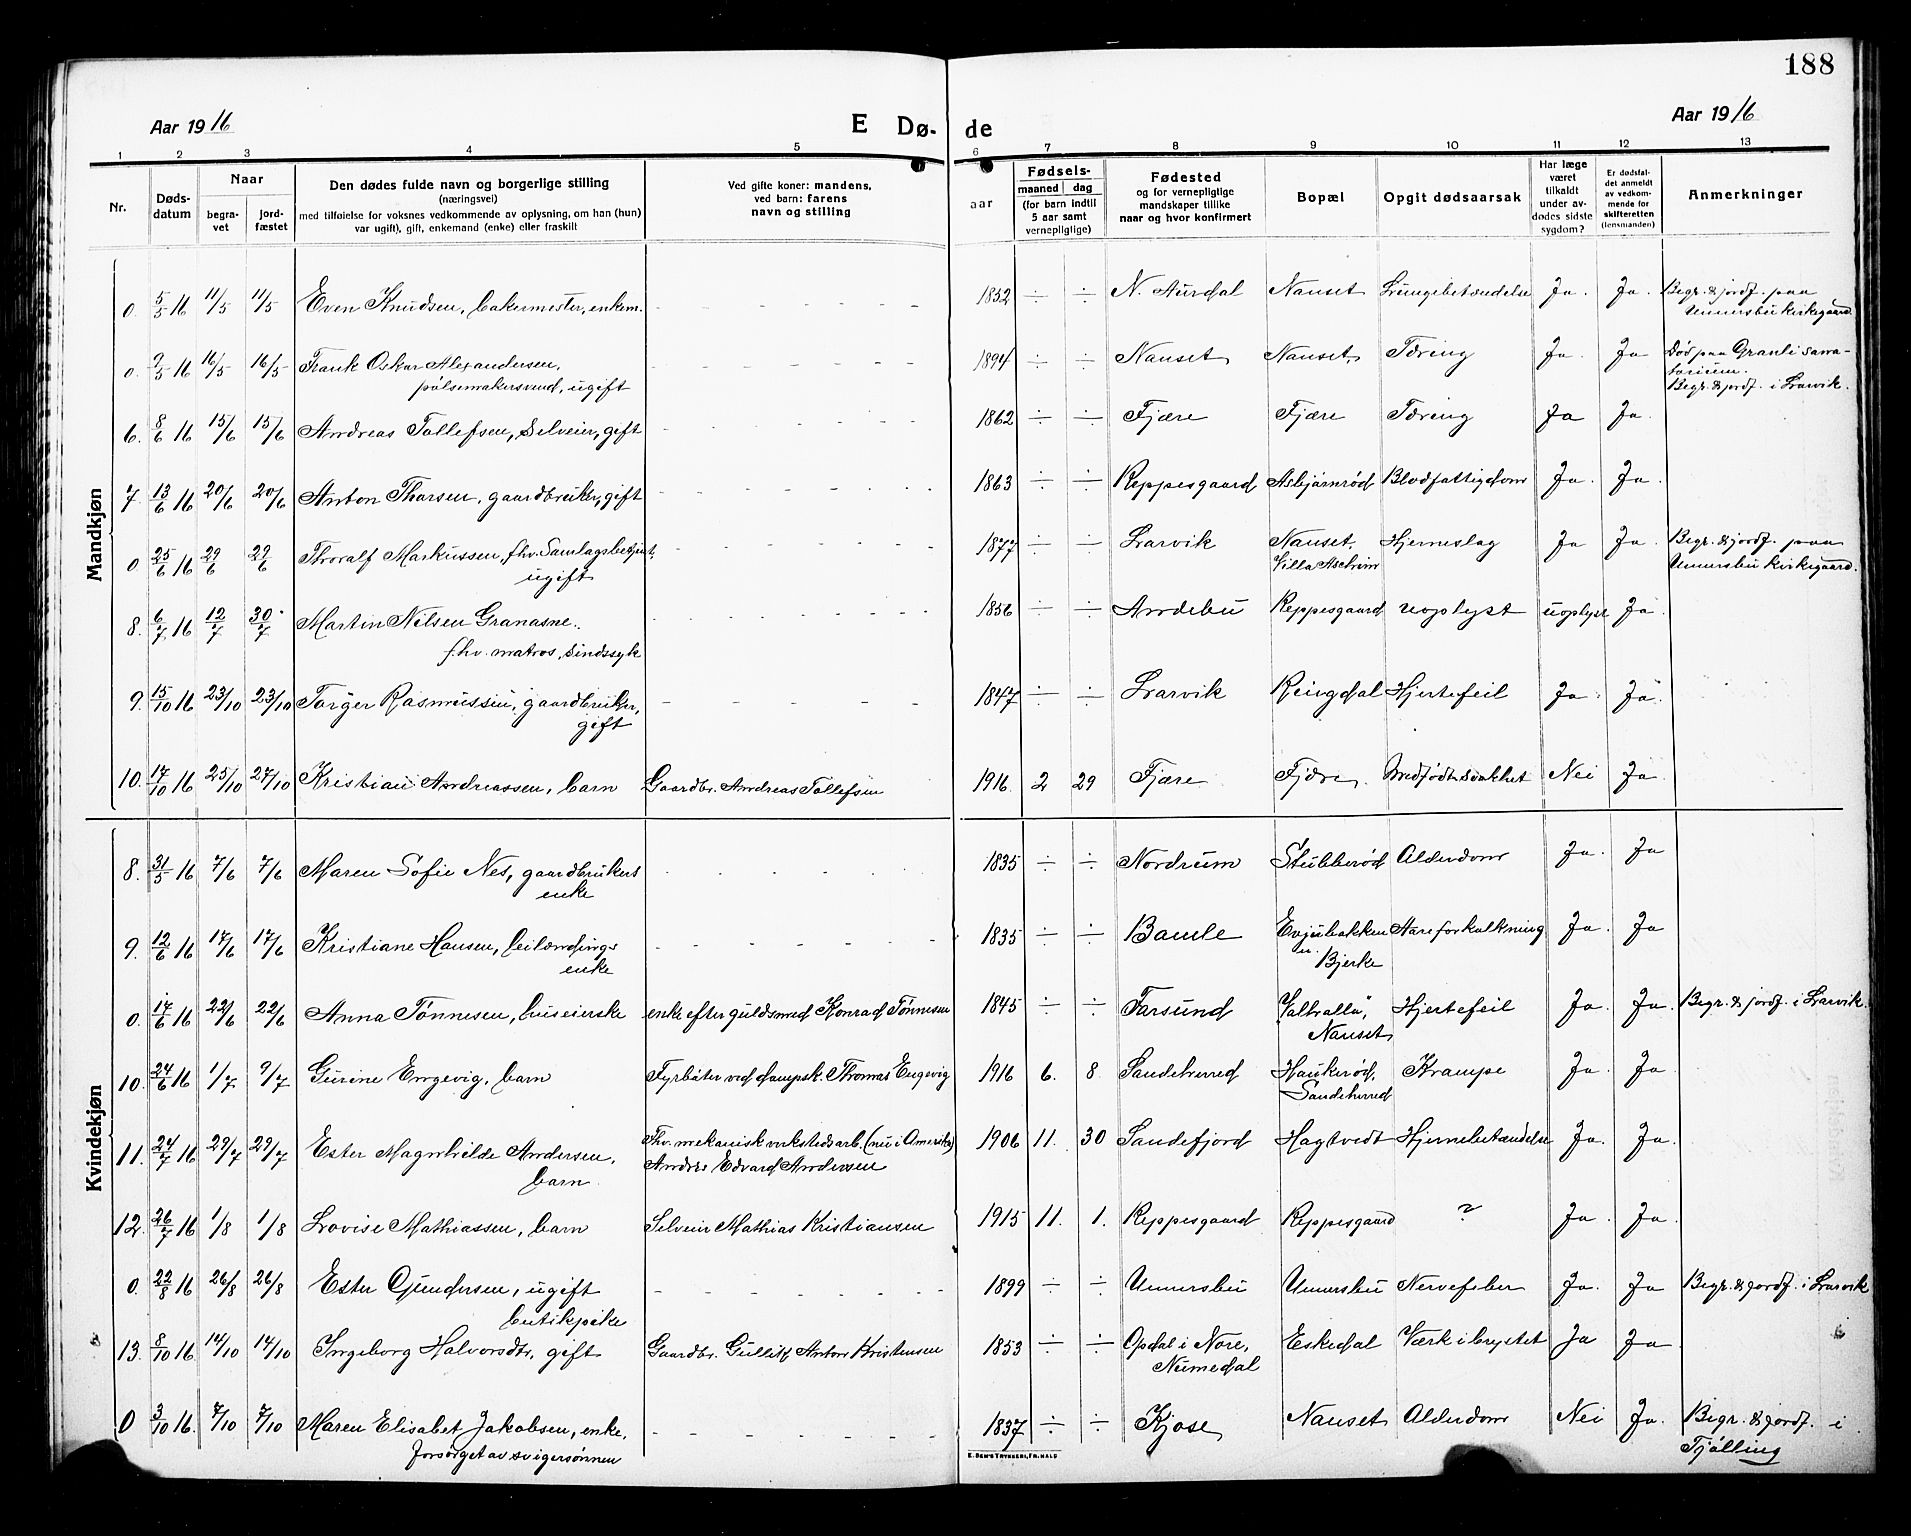 188
Aar 1916
E Dø-
de
Aar 1916
1 2 3 4 5 6 7 8 9 10 11 12 13
Nr.
Døds-
datum
Naar
begra-
vet
jord-
fæstet
Den dødes fulde navn og borgerlige stilling
(næringsvei)
med tilføielse for voksnes vedkommende av oplysning, om han (hun)
var ugift), gift, enkemand (enke) eller fraskilt
Ved gifte koner: mandens,
ved barn: farens
navn og stilling
aar
Fødsels-
maaned dag
(for barn indtil
5 aar samt
vernepligtige)
Fødested
og for vernepligtige
mandskaper tillike
naar og hvor konfirmert
Bopæl
Opgit dødsaarsak
Har læge
været
tilkaldt
under av-
dødes sidste
sygdom?
Er dødsfal-
det anmeldt
av vedkom-
mende for
skifteretten
(lensmanden)
Anmerkninger
Mandkjøn
0. 5/5 16 11/5 11/5 Even Knudsen, bakermester, enkem. 1852 ÷ ÷ N. Aurdal Nanset Lungebetændelse Ja. Ja. Begr. & jordf. paa
Unnersbu kirkegaard.
0. 9/5 16 16/5 16/5 Frank Oskar Alexandersen, 1894 ÷ ÷ Nanset Nanset Tæring Ja. Ja Død paa Granli sana-
torium.
pølsemakersvend, ugift Begr. & jordf. i Larvik.
6. 8/6 16 15/6 15/6 Andreas Tollefsen, Selveier, gift 1862 ÷ ÷ Fjære Fjære Tæring Ja Ja.
7. 13/6 16 20/6 20/6 Anton Thorsen, gaardbruker, gift 1863 ÷ ÷ Reppesgaard Asbjørnrød Blodfattigdom Ja. Ja.
0. 25/6 16 29/6 29/6 Thoralf Markussen, fhv. Samlagsbetjent, 1877 ÷ ÷ Larvik Nanset, Hjerneslag Ja Ja. Begr. & jordf. paa
ugift Villa Aschim Unnersbu kirkegaard.
8. 6/7 16 12/7 30/7 Martin Nilsen Granasne. 1856 ÷ ÷ Andebu Reppesgaard uoplyst uoplyst Ja
f.hv. matros, sindssyk
9. 15/10 16 23/10 23/10 Torger Rasmussen, gaardbruker, 1847 ÷ ÷ Larvik Ringdal Hjertefeil Ja. Ja.
gift
10. 17/10 16 25/10 27/10 Kristian Andreassen, barn Gaardbr. Andreas Tollefsen 1916 2 29 Fjære Fjære. Medfødt svakhet Nei Ja
Kvindekjøn
8. 31/5 16 7/6 7/6 Maren Sofie Nes, gaardbrukers 1835 ÷ ÷ Nordrum Stubberød Alderdom Ja. Ja
enke
9. 12/6 16 17/6 17/6 Kristiane Hansen, leilændings 1835 ÷ ÷ Bamle Evjubakken Aareforkalkning Ja. Ja
enke u. Bjerke
0. 17/6 16 22/6 22/6 Anna Tønnesen, huseierske enke efter guldsmed Konrad Tønnesen 1845 ÷ ÷ Farsund "Valhalla", Hjertefeil Ja. Ja. Begr. & jordf. i Larvik.
Nanset
10. 24/6 16 1/7 9/7 Gurine Engevig, barn Fyrbøter ved dampsk. Thomas Engevig 1916 6. 8 Sandeherred Haukerød, Krampe Ja. Ja.
Sandeherred
11. 24/7 16 29/7 29/7 Ester Magnhilde Andersen, Fhv. mekanisk verkstedsarb. (nu i Amerika) 1906 11. 30 Sandefjord Hagtvedt Hjernebetændelse Ja. Ja.
barn Andrees Edvard Andersen
12. 26/7 16 1/8 1/8 Lovise Mathiassen, barn Selveier Mathias Kristiansen 1915 11. 1. Reppesgaard Reppesgaard ? Ja. Ja.
0. 22/8 16 26/8 26/8 Ester Gundersen, ugift 1899 ÷ ÷ Unnersbu Unnersbu Nervefeber Ja. Ja Begr. & jordf. i Larvik
butikpike
13. 8/10 16 14/10 14/10 Ingeborg Halvorsdtr, gift Gaardbr. Gullik Anton Kristensen 1853 ÷ ÷ Opdal i Nore, Eskedal Værk i brystet Ja Ja.
Numedal
0 3/10 16. 7/10 7/10 Maren Elisabet Jakobsen, enke. 1837 ÷ ÷ Kjose Nanset Alderdom Nei Ja. Begr. & jordf. i
forsørget av svigersønnen Tjølling
E. SEM'S TRYKKERI, FR.HALD